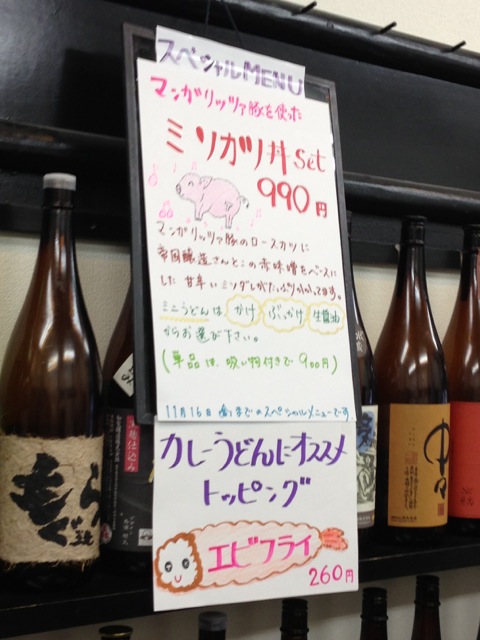 スペシャルMENU
マンガリッツァ豚を使った
ミソガツ丼set
990円
マンガリッツァ豚のロースカツに
した甘辛いミソダレがたっぷりかかってます。
ミニうどんは かけ ぶっかけ 生醤油
からお選び下さい。
(単品は、吸い物付きで900円)
11月16日(金)までのスペシャルメニューです
カレーうどんにオススメ
トッピング
エビフライ
260円
もぐら
中々